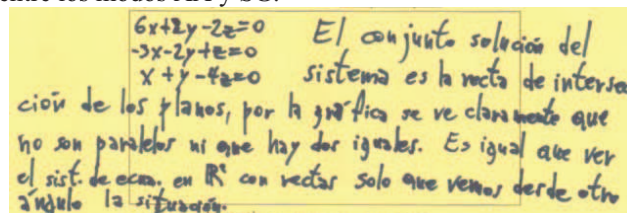 entre los modos AA y SG.
6x+2y-2z=0 El conjunto solución del
-3x-2y+z=0
x+y-4z=0 sistema es la recta de interse
ción de los planos, por la gráfica se ve claramente que
no son paralelos ni que hay dos iguales. Es igual que ver
el sist. de ecua. en R² con rectas solo que vemos desde otro
ángulo la situación.